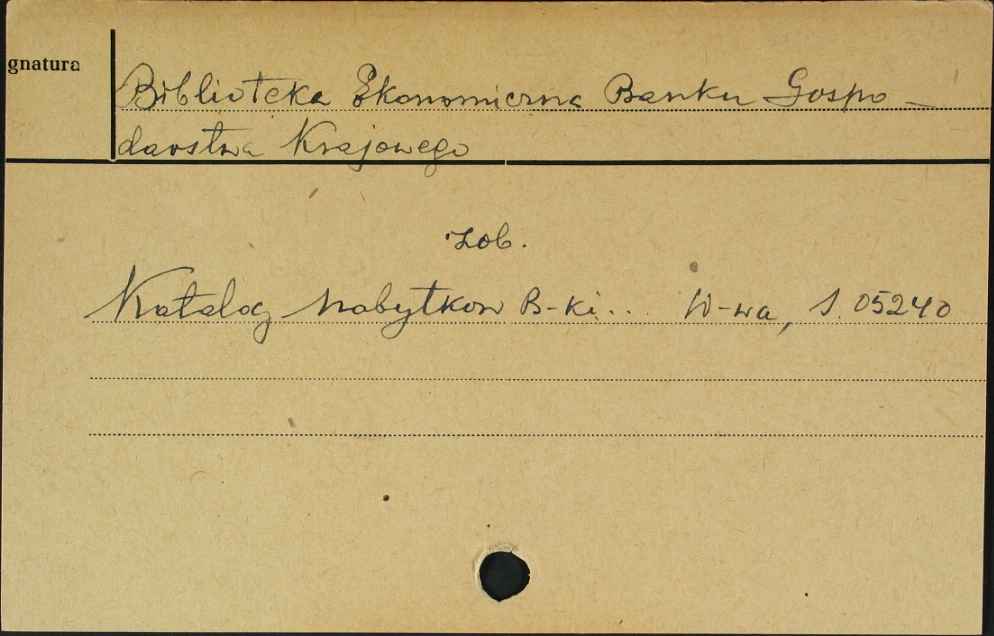 gnatura
Biblioteka Ekonomiczna Banku Gospo-
darstwa Krajowego
zob.
Katalog nabytkow B-ki... W-wa, S. 05240